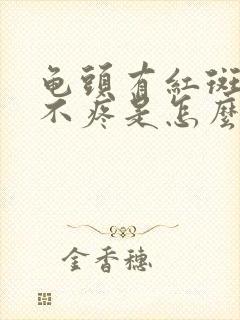 龟頭有紅斑
不疼是怎麼
金香穗